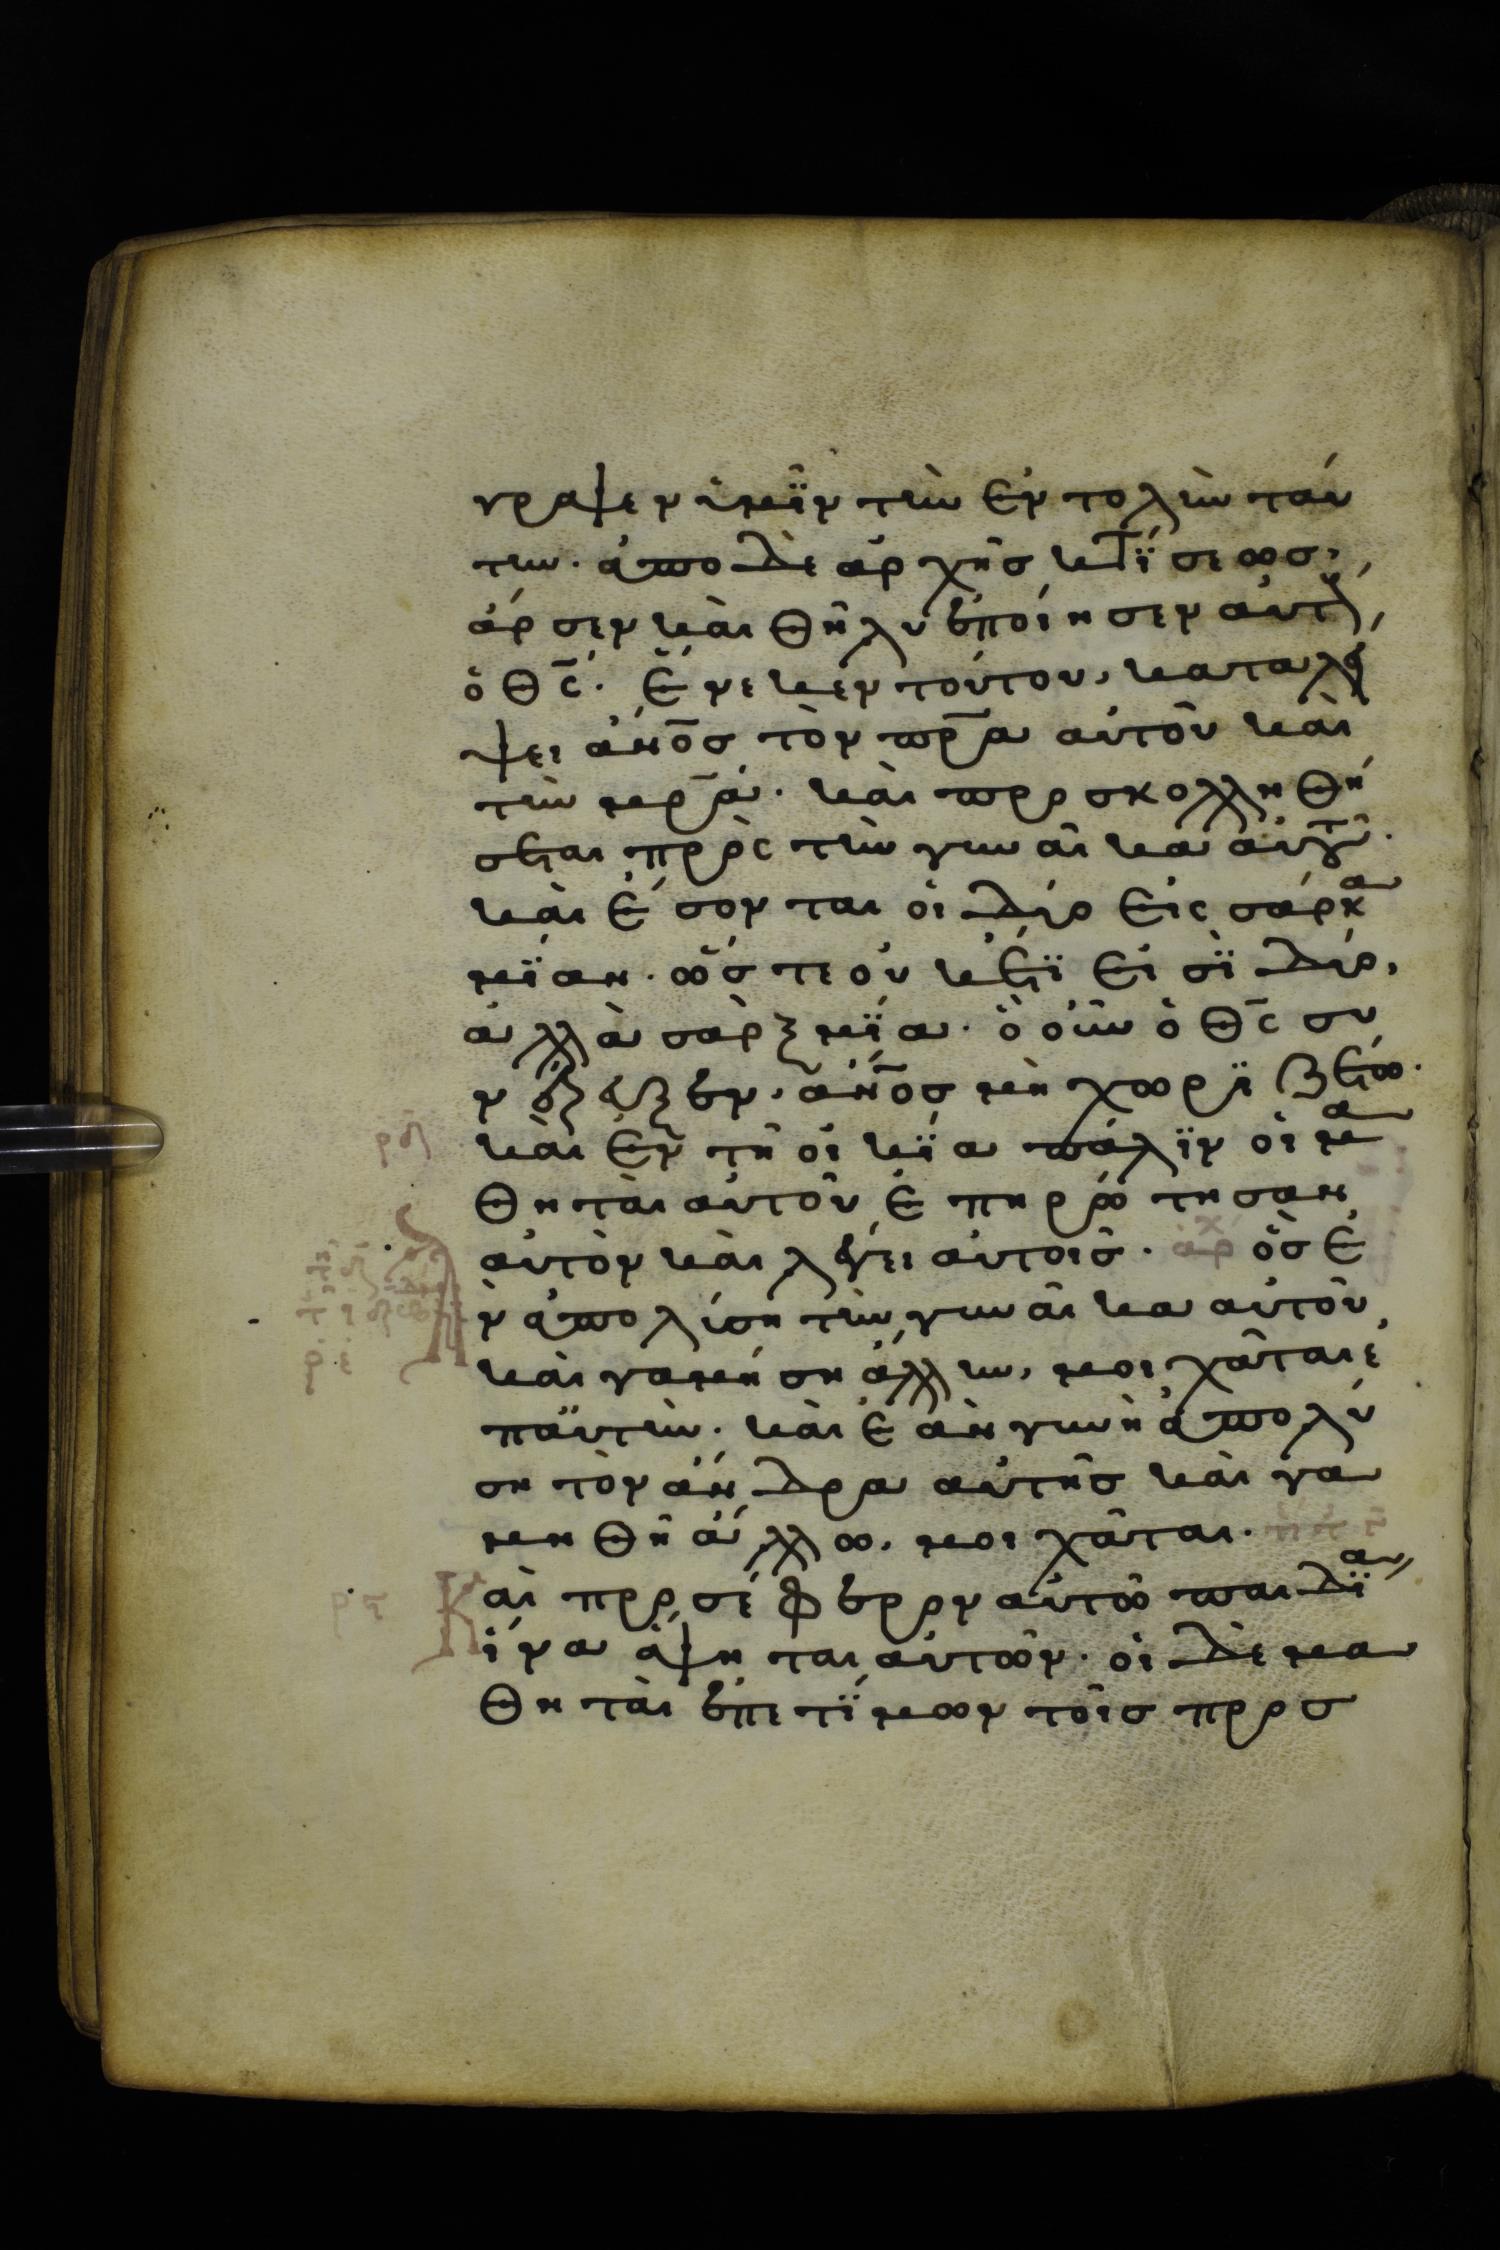 γραψεν ὑμῖν τὴν ἐντολὴν ταύ
την· ἀπο δὲ ἀρχῆσ κτίσεωσ,
ἄρσεν καὶ θῆλυ ἐποίησεν αὐτοὺς,
ὁ θ̅ς̅· ἕνεκεν τούτου, καταλεί
ψει ἄν̅ο̅σ̅ τὸν π̅ρ̅α̅ αὐτοῦ καὶ
τὴν μ̅ρ̅α̅· καὶ προσκολληθή
σεται πρὸς τὴν γυναῖκα αὐτοῦ·
καὶ ἔσονται οἱ δύο εἰς σάρκα
μίαν· ὥστε οὐκέτι εἰσὶ δύο,
ἀλλὰ σὰρξ μία· ὃ οὖν ὁ θ̅ς̅ συ
νέζευξεν, ἄν̅ο̅σ̅ μὴ χωριζέτω·
ρδ
καὶ ἐν τῆ οἰκία πάλιν οἱ μα
θηταὶ αὐτοῦ ἐπηρώτησαν
αὐτὸν καὶ λέγει αὐτοῖσ· ἀρχ ὃσ ἐ
ρε
ὰν ἀπολύση τὴν γυναῖκα αὐτοῦ
καὶ γαμήση ἄλλην, μοιχᾶται ἐ
π' αὐτὴν· καὶ ἐὰν γυνὴ ἀπολύ
ση τὸν ἄνδρα αὐτῆσ καὶ γα
μηθῆ ἄλλω, μοιχᾶται·
ρϛ
Καὶ προσέφερον αὐτῶ παιδία
ἵνα ἅψηται αὐτῶν· οἱ δὲ μα
θηταὶ ἐπετίμων τοῖσ προσ